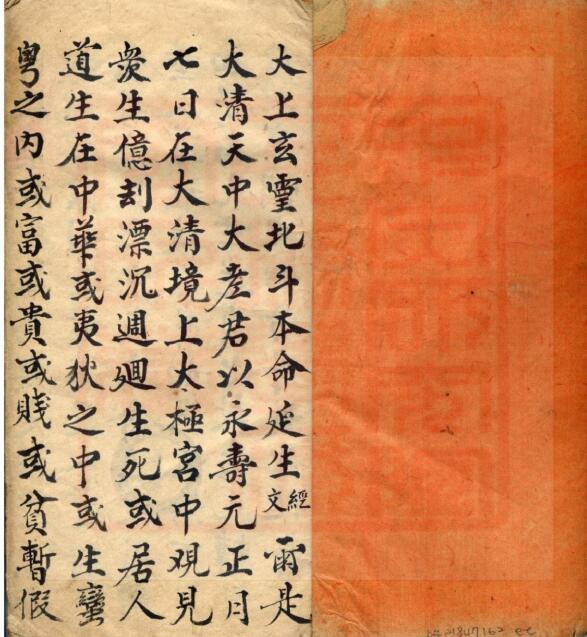 大上玄霊北斗本命延生經文雨是
大清天中大老君以永壽元正日
七日在大清境上大極宮中覌見
衆生億刦漂沉週廻生死或居人
道生在中華或夷狄之中或生蠻
粤之内或富或貴或賤或貧暫假